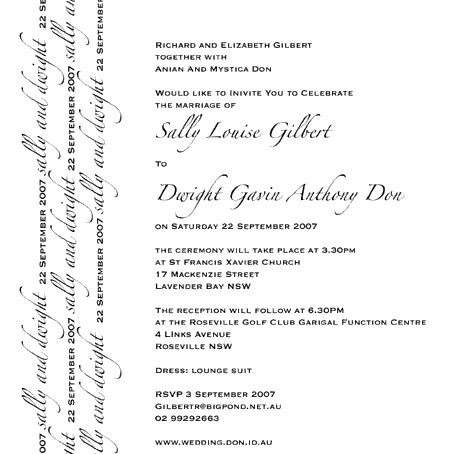 Richard and Elizabeth Gilbert
together with
Anian And Mystica Don
Would like to Invite You to Celebrate
the marriage of
Sally Louise Gilbert
To
Dwight Gavin Anthony Don
on Saturday 22 September 2007
the ceremony will take place at 3.30pm
at St Francis Xavier Church
17 Mackenzie Street
Lavender Bay NSW
The reception will follow at 6.30pm
at the Roseville Golf Club Garigal Function Centre
4 Links Avenue
Roseville NSW
Dress: lounge suit
RSVP 3 September 2007
Gilbertr@bigpond.net.au
02 99292663
www.wedding.don.id.au
007 sally and dwight 22 September 2007 sally and dwight 22 Septe
ht 22 September 2007 sally and dwight 22 September 2007 sally an
lly and dwight 22 September 2007 sally and dwight 22 Septembe